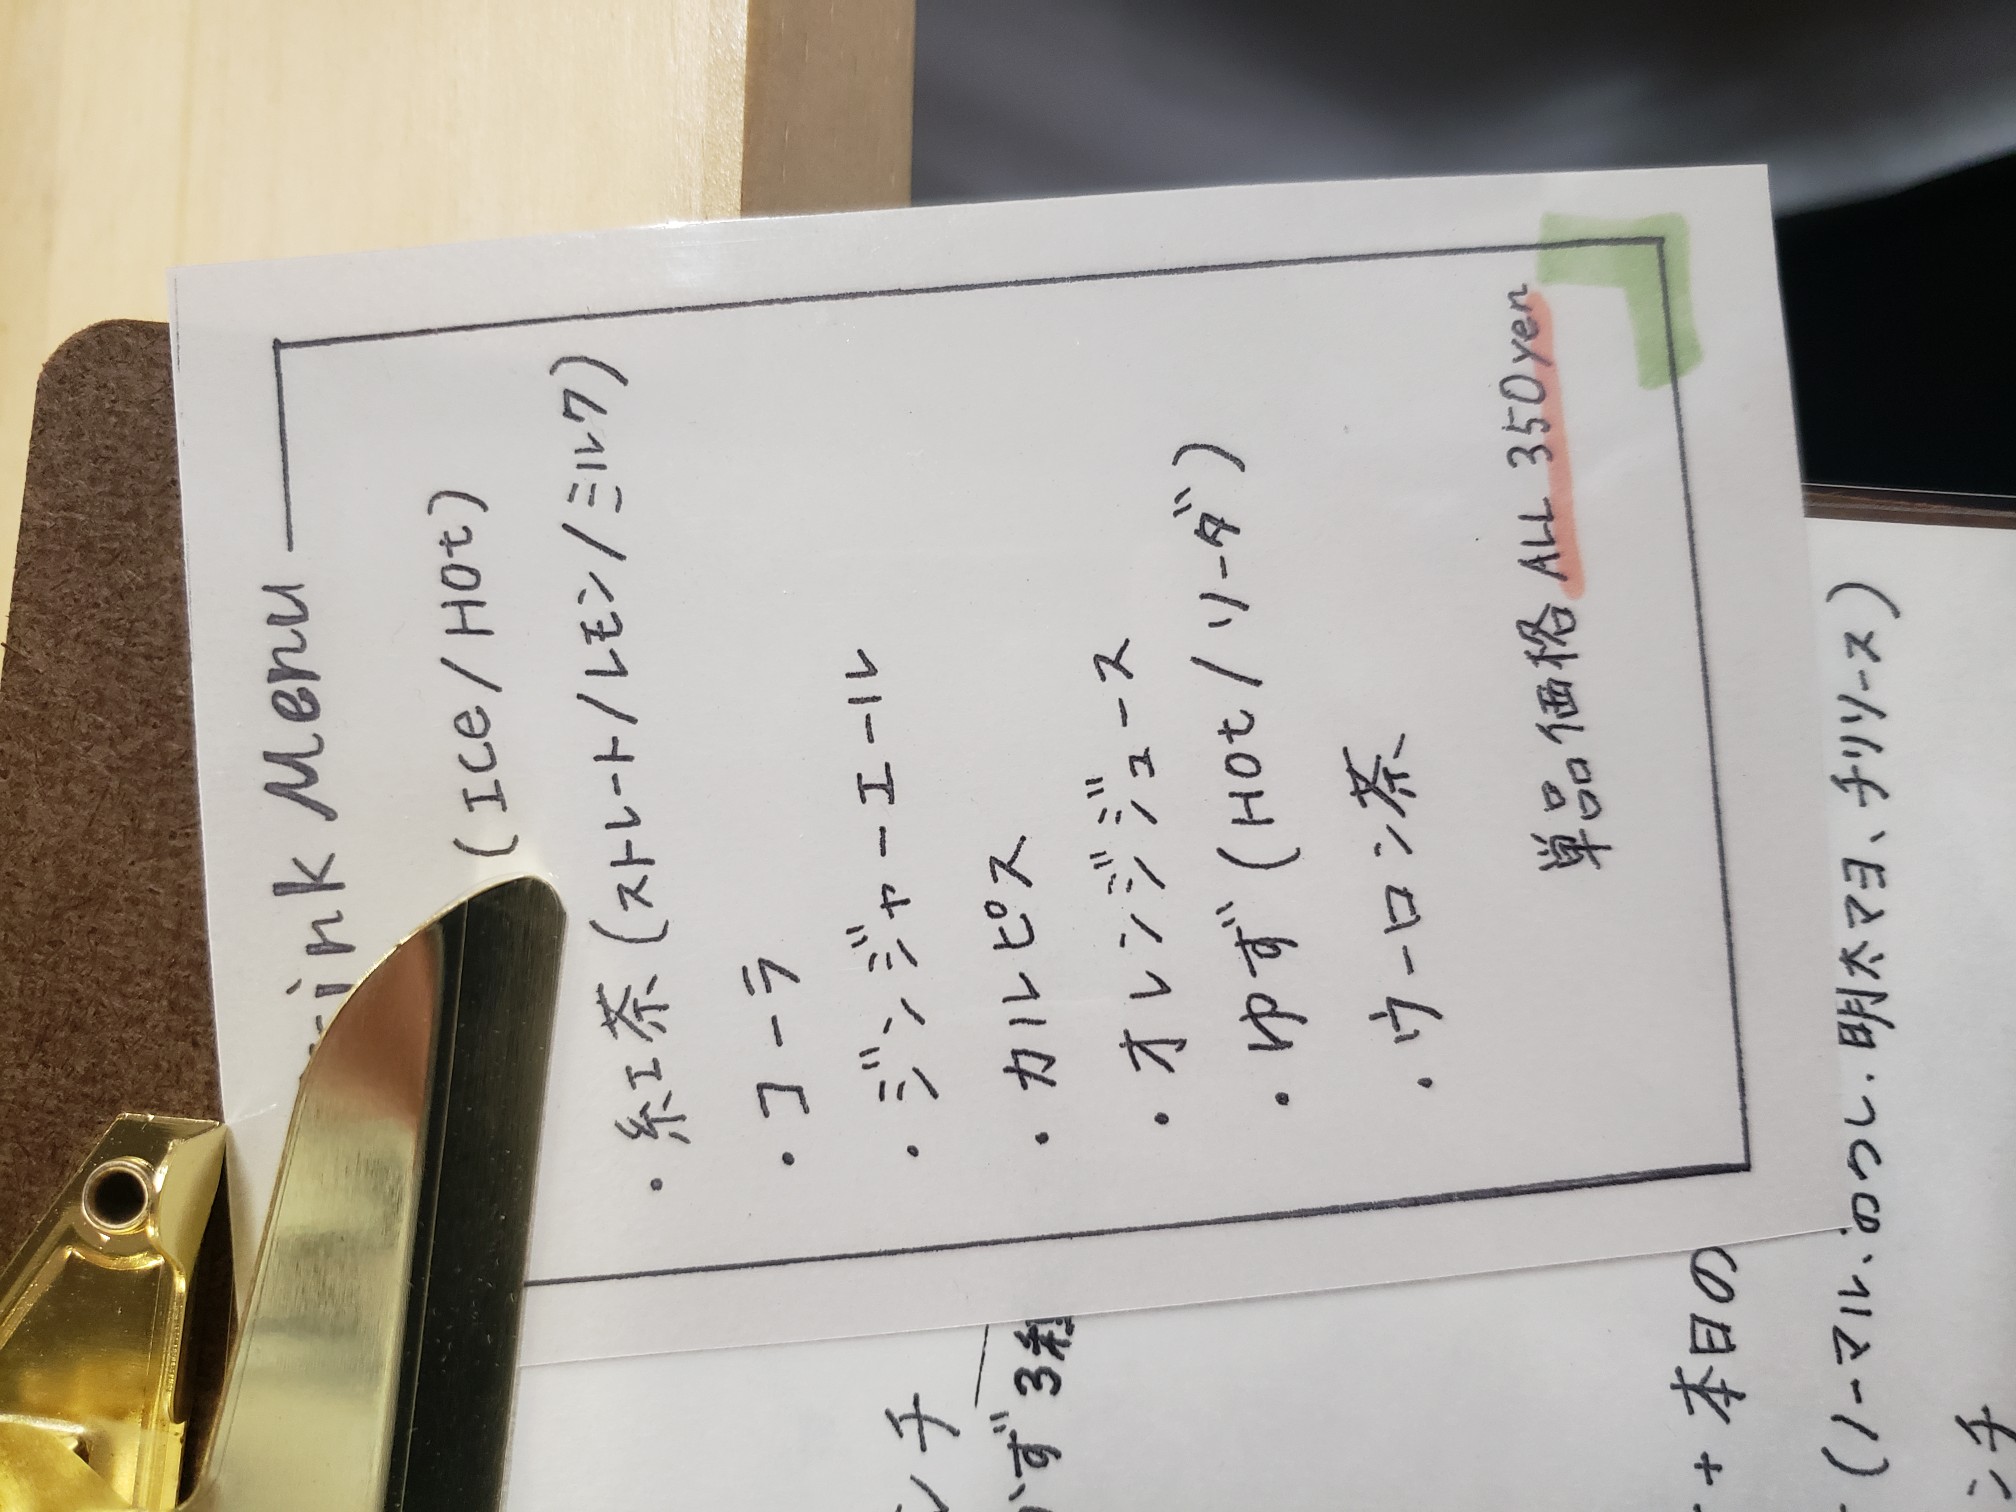 ink Menu
(Ice/Hot)
・紅茶(ストレート/レモン/ミルク)
・コーラ
・ジンジャーエール
・カルピス
・オレンジジュース
・ゆず(Hot/ソーダ)
・ウーロン茶
単品価格 ALL 350yen
ンチ
かず3種
+ 本日の
(ノーマル、のりし、明太マヨ、チリソース)
ンチ